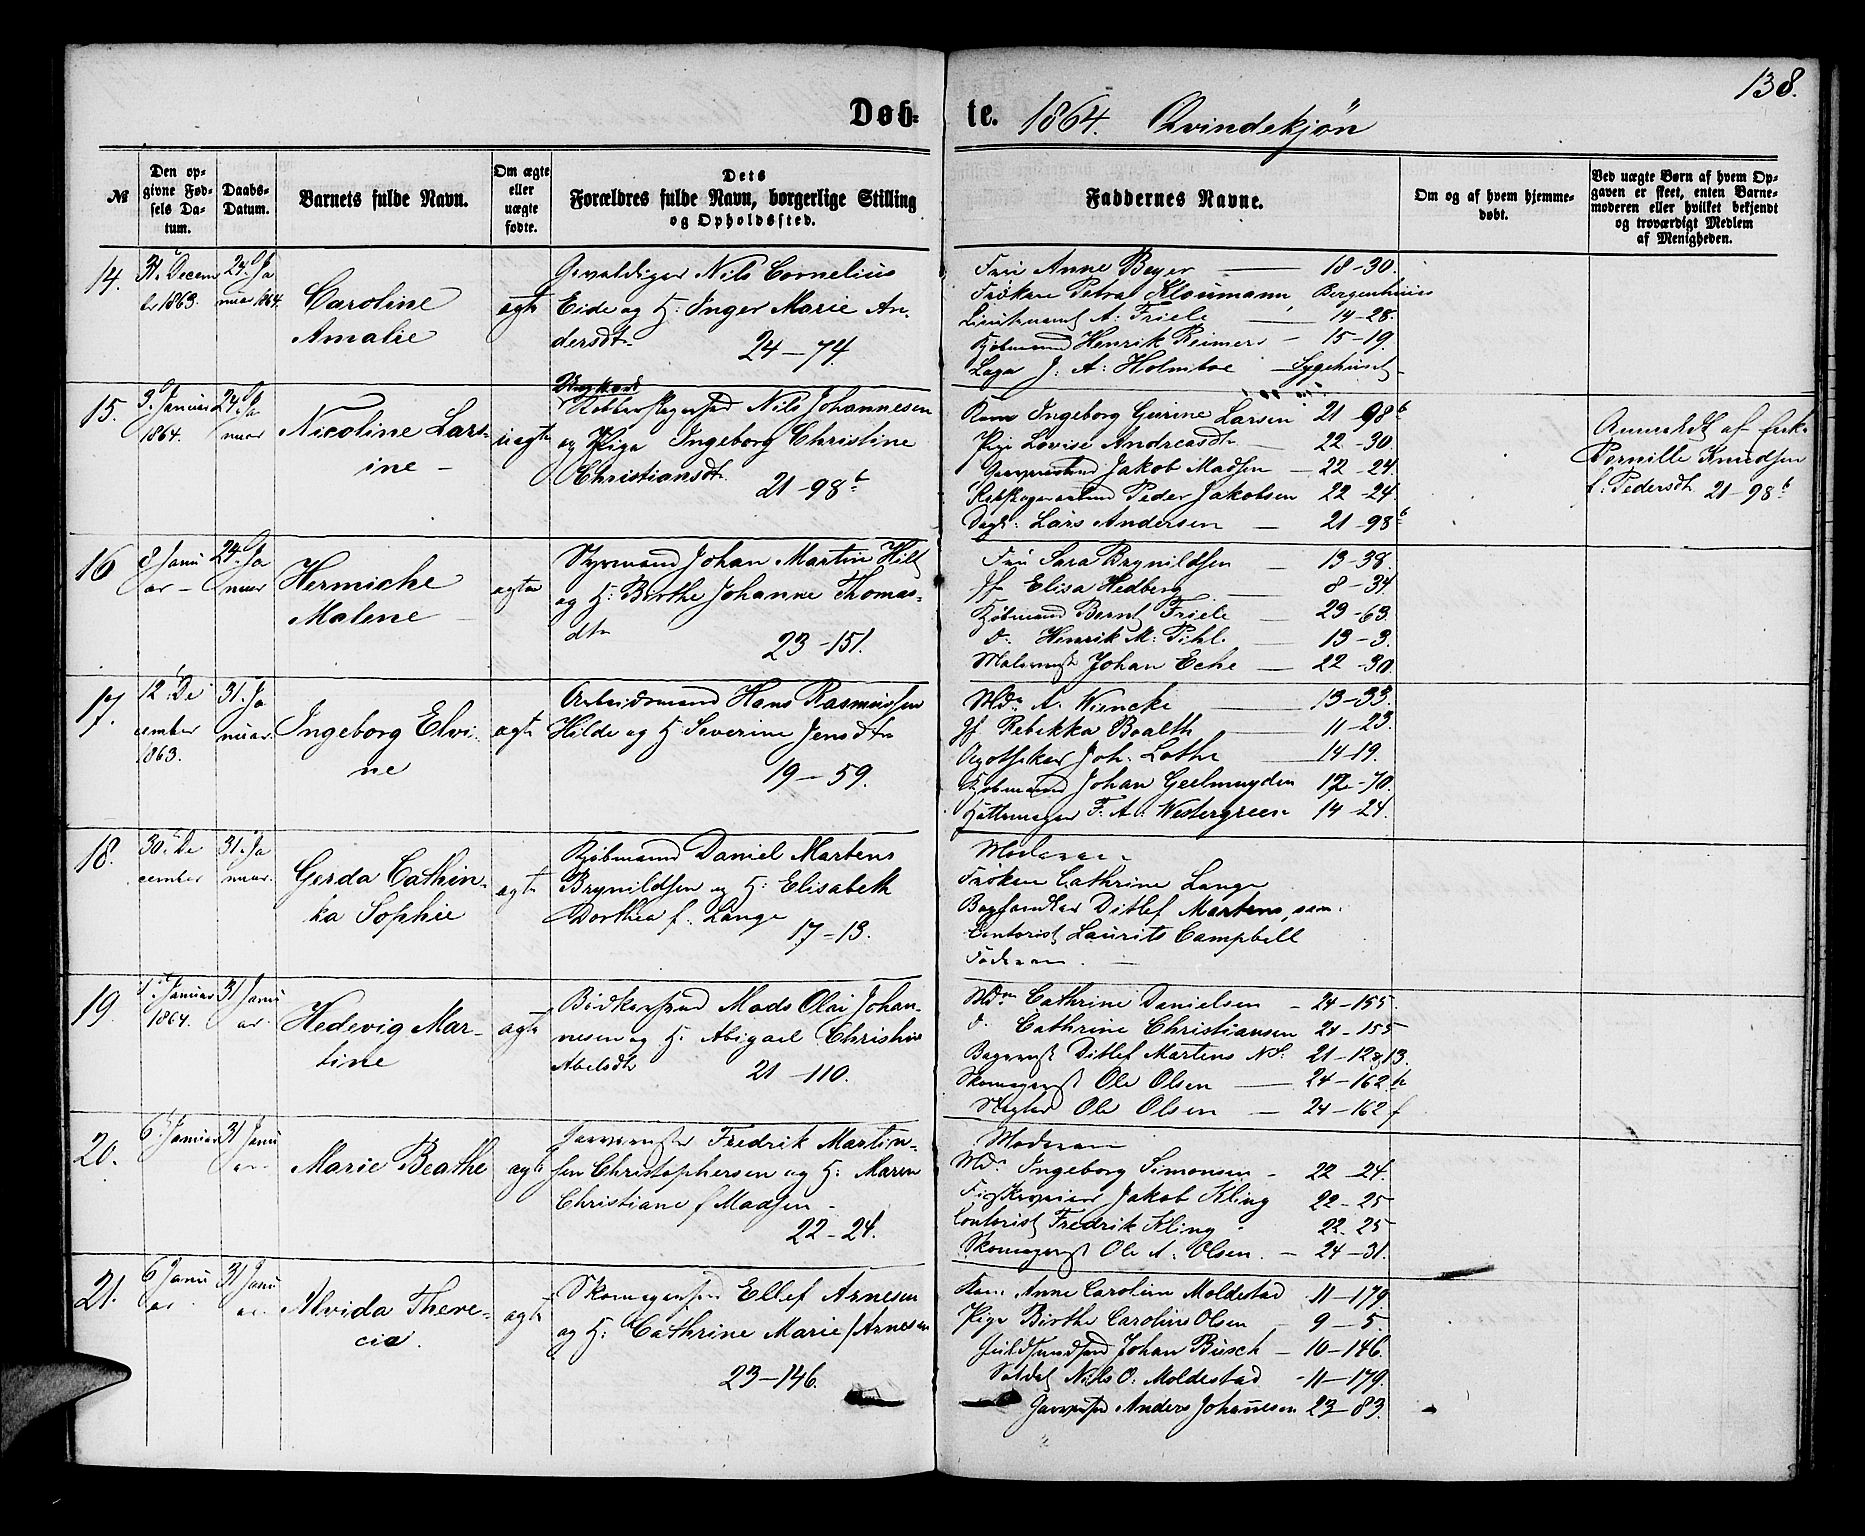 138.
Døb-te. 1864. Qvindekjøn
№
Den op-
givne Fød-
sels Da-
tum.
Daabs-
Datum.
Barnets fulde Navn.
Om ægte
eller
uægte
fødte.
Dets
Forældres fulde Navn, borgerlige Stilling
og Opholdssted.
Faddernes Navne.
Om og af hvem hjemme-
døbt.
Ved uægte Børn af hvem Op-
gaven er skeet, enten Barne-
moderen eller hvilket bekjendt
og troværdigt Medlem
af Menigheden.
14.
31. Decem
br 1863.
24. Ja
nuar 1864.
Caroline
Amalie
ægte
Gevaldiger Nils Cornelius
Eide og H: Inger Marie An-
dersdtr
24-74.
Fru Anne Beyer 18-30.
Frøken Petra Kloumann, Bergenhuus
Lieutenant A: Friele 14-28.
Kjøbmand Henrik Reimers 15-19.
Læge J. A: Holmboe Sygehuset
15.
3. Januar
1864.
24. Ja
nuar
Nicoline Lars-
ine
uægte
Ungkarl
Kobberslagersvd Nils Johannesen
og Pige Ingeborg Christine
Christiansdt.
21-98b
Kone Ingeborg Gurine Larsen 21-98b
Pige Lovise Andreasdtr 22-30
Garversvend Jakob Madsen 22-24.
Rebslagersvend Peder Jakobsen 22-24.
Dagk: Lars Andersen 21-98b
Anmeldt af Enke
Pernille Knudsen
f: Pedersdt 21-98b
16
8 Janu
ar
24. Ja
nuar
Hermiche
Malene
ægte
Styrmand Johan Martin Hilt
og H: Berthe Johanne Thomas-
dtr
23-151.
Fru Sara Brynildsen 13-38.
Jf Elisa Hedberg 8-34.
Kjøbmand Bernt Friele 23-63.
d. Henrik M: Pihl 13-3.
Malermst Johan Eche 22-30
17.
12. De
cember
1863.
31. Ja
nuar.
Ingeborg Elvi-
ne
ægte
Arbeidsmand Hans Rasmussen
Hilde og H: Severine Jensdtr
19-59.
Md. A. Wiencke 13-33.
Jf Rebekka Boalth 11-23.
Apotheker Joh. Lothe 14-19.
Kjøbmand Johan Geelmuyden 12-70.
Hattemager F. A. Westergreen 14-24.
18.
30. De
cember
31. Ja
nuar.
Gerda Cathin-
ka Sophie
ægte
Kjøbmand Daniel Martens
Brynildsen og H: Elisabeth
Dorthea f. Lange
17-13.
Moderen
Frøken Cathrine Lange
Boghandler Ditlef Martens, sen:
Contorist Laurits Campbell
Faderen.
19.
1. Januar
1864.
31 Janu
ar.
Hedevig Mar-
tine
ægte
Bødkersvend Mads Olai Johan-
nesen og H: Abigael Christine
Abelsdtr
21-110.
Mdm Cathrine Danielsen 24-155.
d. Cathrine Christiansen 24-155
Bagermst Ditlef Martens NS: 21-12&13.
Skomagermst Ole Olsen 24-162b
Nagler Ole Olsen 24-162f
20.
6. Januar
31 Janu
ar.
Marie Beathe
ægte
Garvermster Fredrik Martin-
sen Christophersen og H: Maren
Christiane f Madsen
22-24.
Moderen
Md. Ingeborg Simonsen 22-24.
Jakob Kling 22-25
Contorist Fredrik Kling 22-25
Skomagermst Ole A. Olsen. 24-31.
21.
6 Janu
ar.
31 Janu
ar.
Alvida There-
cia.
ægte
Skomagersvd Ellef Arnesen
og H: Cathrine Marie Arnesen
23-146.
Kone Anne Caroline Moldestad 11-179
Pige Birthe Caroline Olsen 9-5.
Guldsmedsvd Johan Busch 10-146.
Soldat Nils O. Moldestad 11-179.
Garversvd Anders Johannesen 23-83.